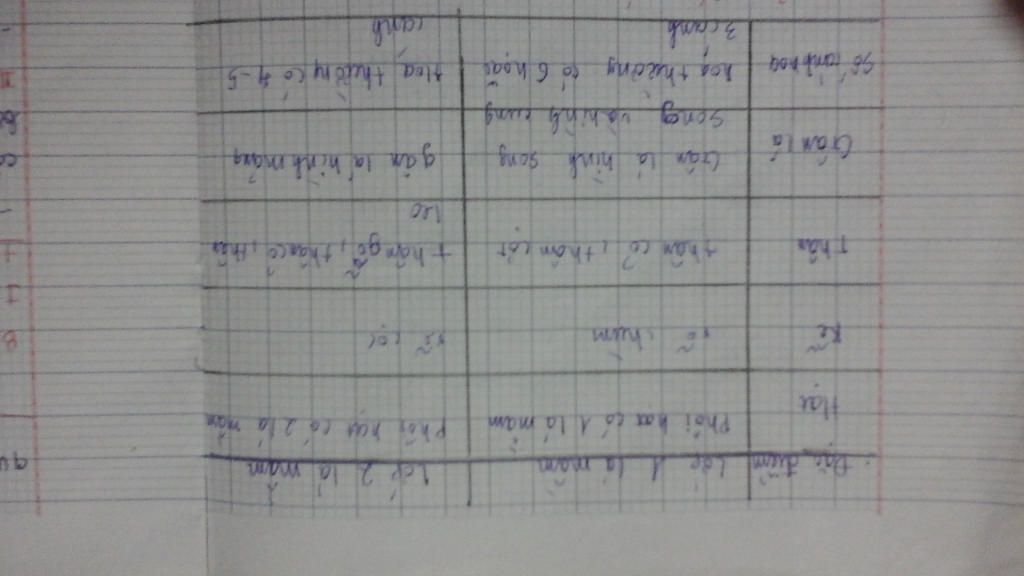 Đặc điểm Lớp 1 lá mầm Lớp 2 lá mầm
Hạt Phôi hạt có 1 lá mầm Phôi hạt có 2 lá mầm
Rễ rễ chùm rễ cọc
Thân thân cỏ, thân cột thân gỗ, thân cỏ, thân
leo
Gân lá Gân lá hình song gân lá hình mạng
song và hình cung
Số cánh hoa hoa thường có 6 hoặc Hoa thường có 4-5
3 cánh cánh